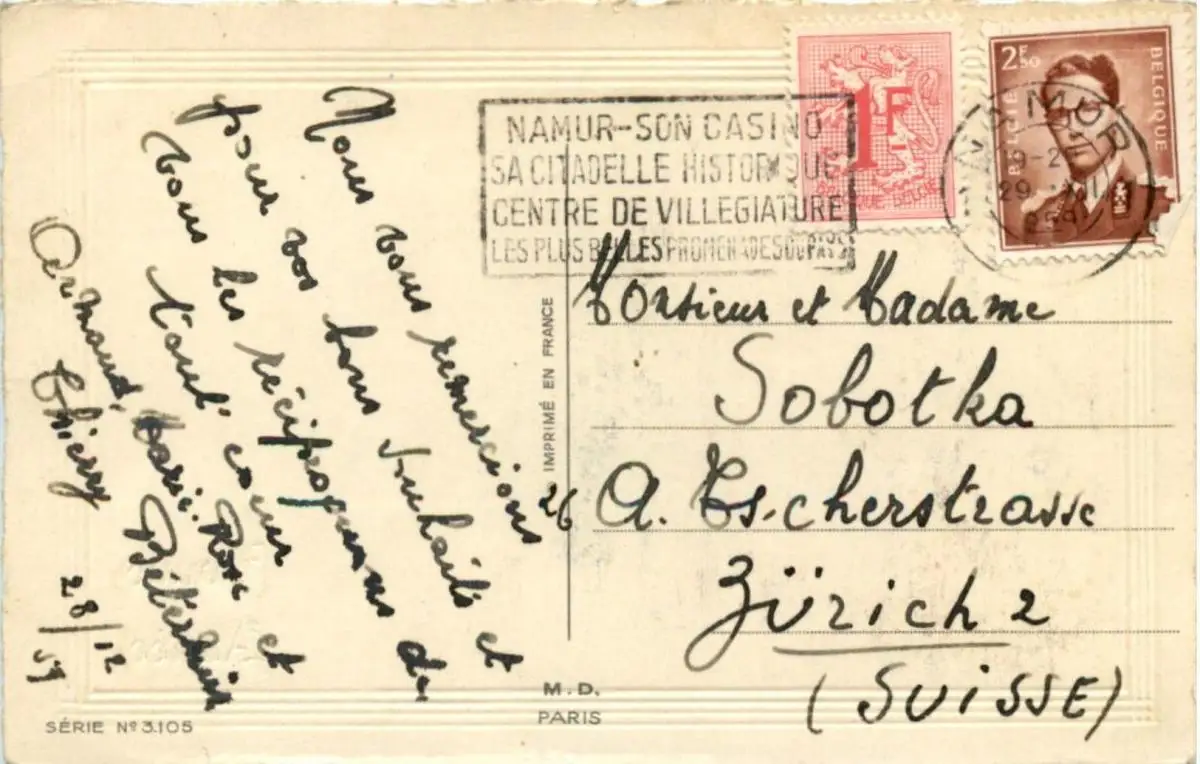 Nous vous remercions
pour vos bons souhaits et
vous les réciproquons de
tout cœur
Armand, Marie-Rose et
Thierry
28/12
59
NAMUR-SON CASINO
SA CITADELLE HISTORIQUE
CENTRE DE VILLEGIATURE
LES PLUS BELLES PROMENADES DU PAYS
1F
BELGIQUE BELGIË
2F50
BELGIË
BELGIQUE
NAMUR
29 XII
1959
Monsieur et Madame
Sobotka
26 A. Escherstrasse
Zürich 2
(SUISSE)
IMPRIMÉ EN FRANCE
M.D.
PARIS
SÉRIE Nº 3.105